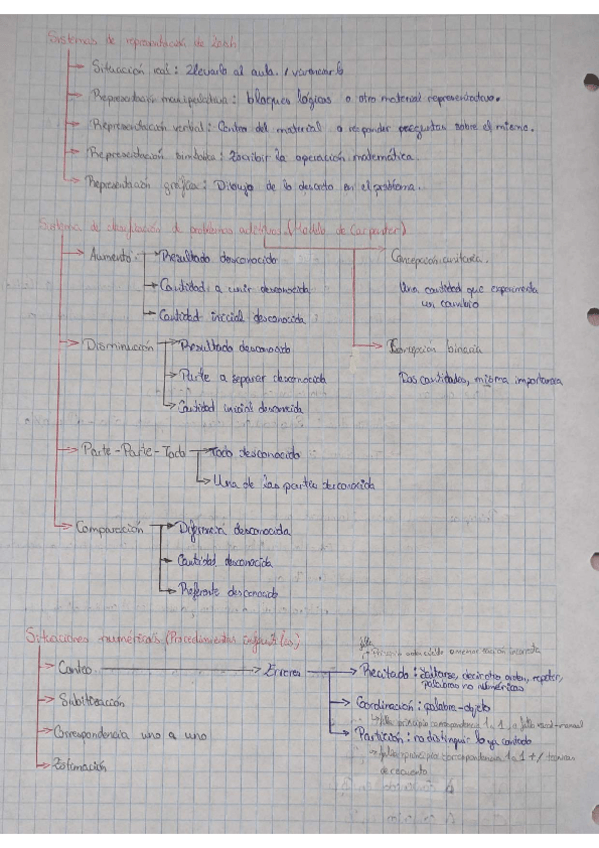 Sistemas de representación de Lesh
Situación real: Llevarlo al aula / vivenciarlo
Representación manipulativa: bloques lógicos o otro material representativo.
Representación verbal: Conteo del material o responder preguntas sobre el mismo.
Representación simbólica: Escribir la operación matemática.
Representación gráfica: Dibujo de lo descrito en el problema.
Sistema de clasificación de problemas aditivos (Modelo de Carpenter)
Aumento Resultado desconocido
Cantidad a unir desconocida
Cantidad inicial desconocida
Concepción unitaria.
Una cantidad que experimenta
un cambio
Concepción binaria
Dos cantidades, misma importancia
Disminución Resultado desconocido
Parte a separar desconocida
Cantidad inicial desconocida
Parte-Parte-Todo Todo desconocido
Una de las partes desconocida
Comparación Diferencia desconocida
Cantidad desconocida
Referente desconocido
Situaciones numéricas (Procedimientos
Conteo Errores Recitado: Saltarse, decir otro orden, repetir,
palabras no numéricas
Subitización
Coordinación: palabra-objeto
principio correspondencia 1 a 1
Correspondencia uno a uno
Partición: no distinguir lo ya contado
principio correspondencia 1 a 1 +/ técnicas
de recuento
Estimación